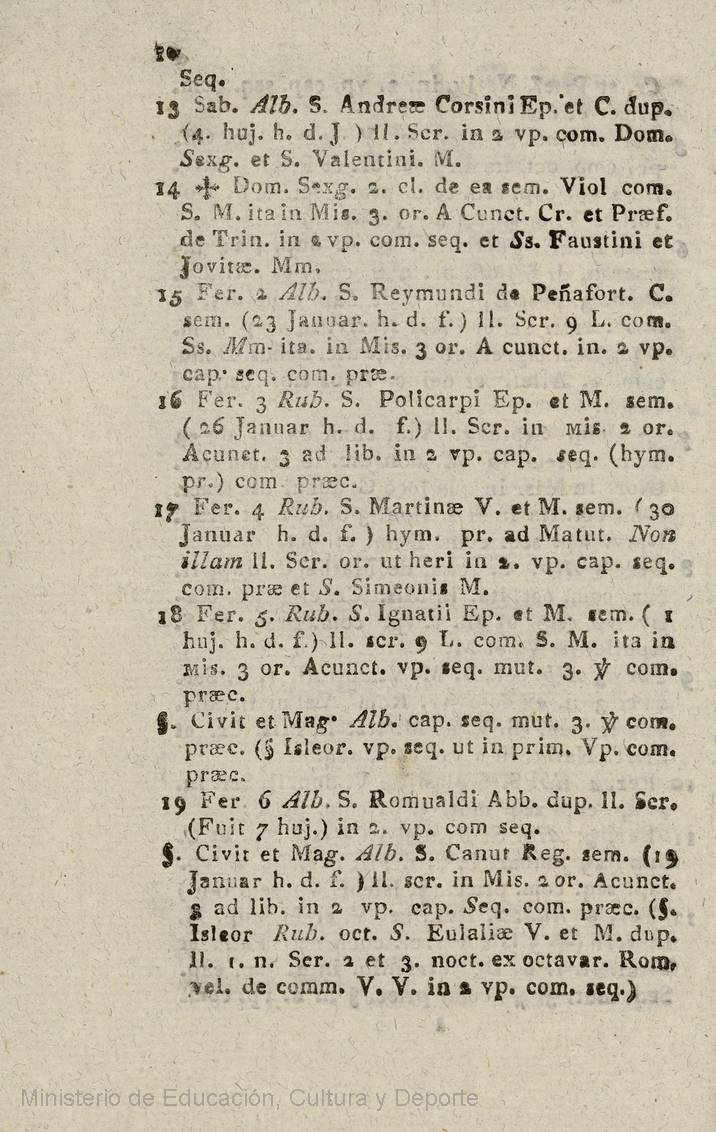 Seq.
13 Sab. Alb. S. Andreæ Corsini Ep. et C. dup.
(4. huj. h. d. J ) ll. Scr. in 2 vp. com. Dom.
Sexg. et S. Valentini. M.
14 ✠ Dom. Sexg. 2. cl. de ea sem. Viol com.
S. M. ita in Mis. 3. or. A Cunct. Cr. et Præf.
de Trin. in 2 vp. com. seq. et Ss. Faustini et
Jovitæ. Mm.
15 Fer. 2 Alb. S. Reymundi de Peñafort. C.
sem. (23 Januar. h. d. f.) ll. Scr. 9 L. com.
Ss. Mm- ita. in Mis. 3 or. A cunct. in. 2 vp.
cap. seq. com. præ.
16 Fer. 3 Rub. S. Policarpi Ep. et M. sem.
( 26 Januar h. d. f.) ll. Scr. in Mis 2 or.
Acunct. 3 ad lib. in 2 vp. cap. seq. (hym.
pr.) com. præc.
17 Fer. 4 Rub. S. Martinæ V. et M. sem. (30
Januar h. d. f. ) hym. pr. ad Matut. Non
illam ll. Scr. or. ut heri in 2. vp. cap. seq.
com. præ et S. Simeonis M.
18 Fer. 5. Rub. S. Ignatii Ep. et M. sem. ( 1
huj. h. d. f.) ll. scr. 9 L. com. S. M. ita in
Mis. 3 or. Acunct. vp. seq. mut. 3. ℣ com.
præc.
§. Civit et Mag. Alb. cap. seq. mut. 3. ℣ com.
præc. (§ Isleor. vp. seq. ut in prim. Vp. com.
præc.
19 Fer 6 Alb. S. Romualdi Abb. dup. ll. Scr.
(Fuit 7 huj.) in 2. vp. com seq.
§. Civit et Mag. Alb. S. Canut Reg. sem. (19
Januar h. d. f. ) ll. scr. in Mis. 2 or. Acunct.
3 ad lib. in 2 vp. cap. Seq. com. præc. (§.
Isleor Rub. oct. S. Eulaliæ V. et M. dup.
ll. 1. n. Scr. 2 et 3. noct. ex octavar. Rom,
vel. de comm. V. V. in 2 vp. com. seq.)
Ministerio de Educación, Cultura y Deporte